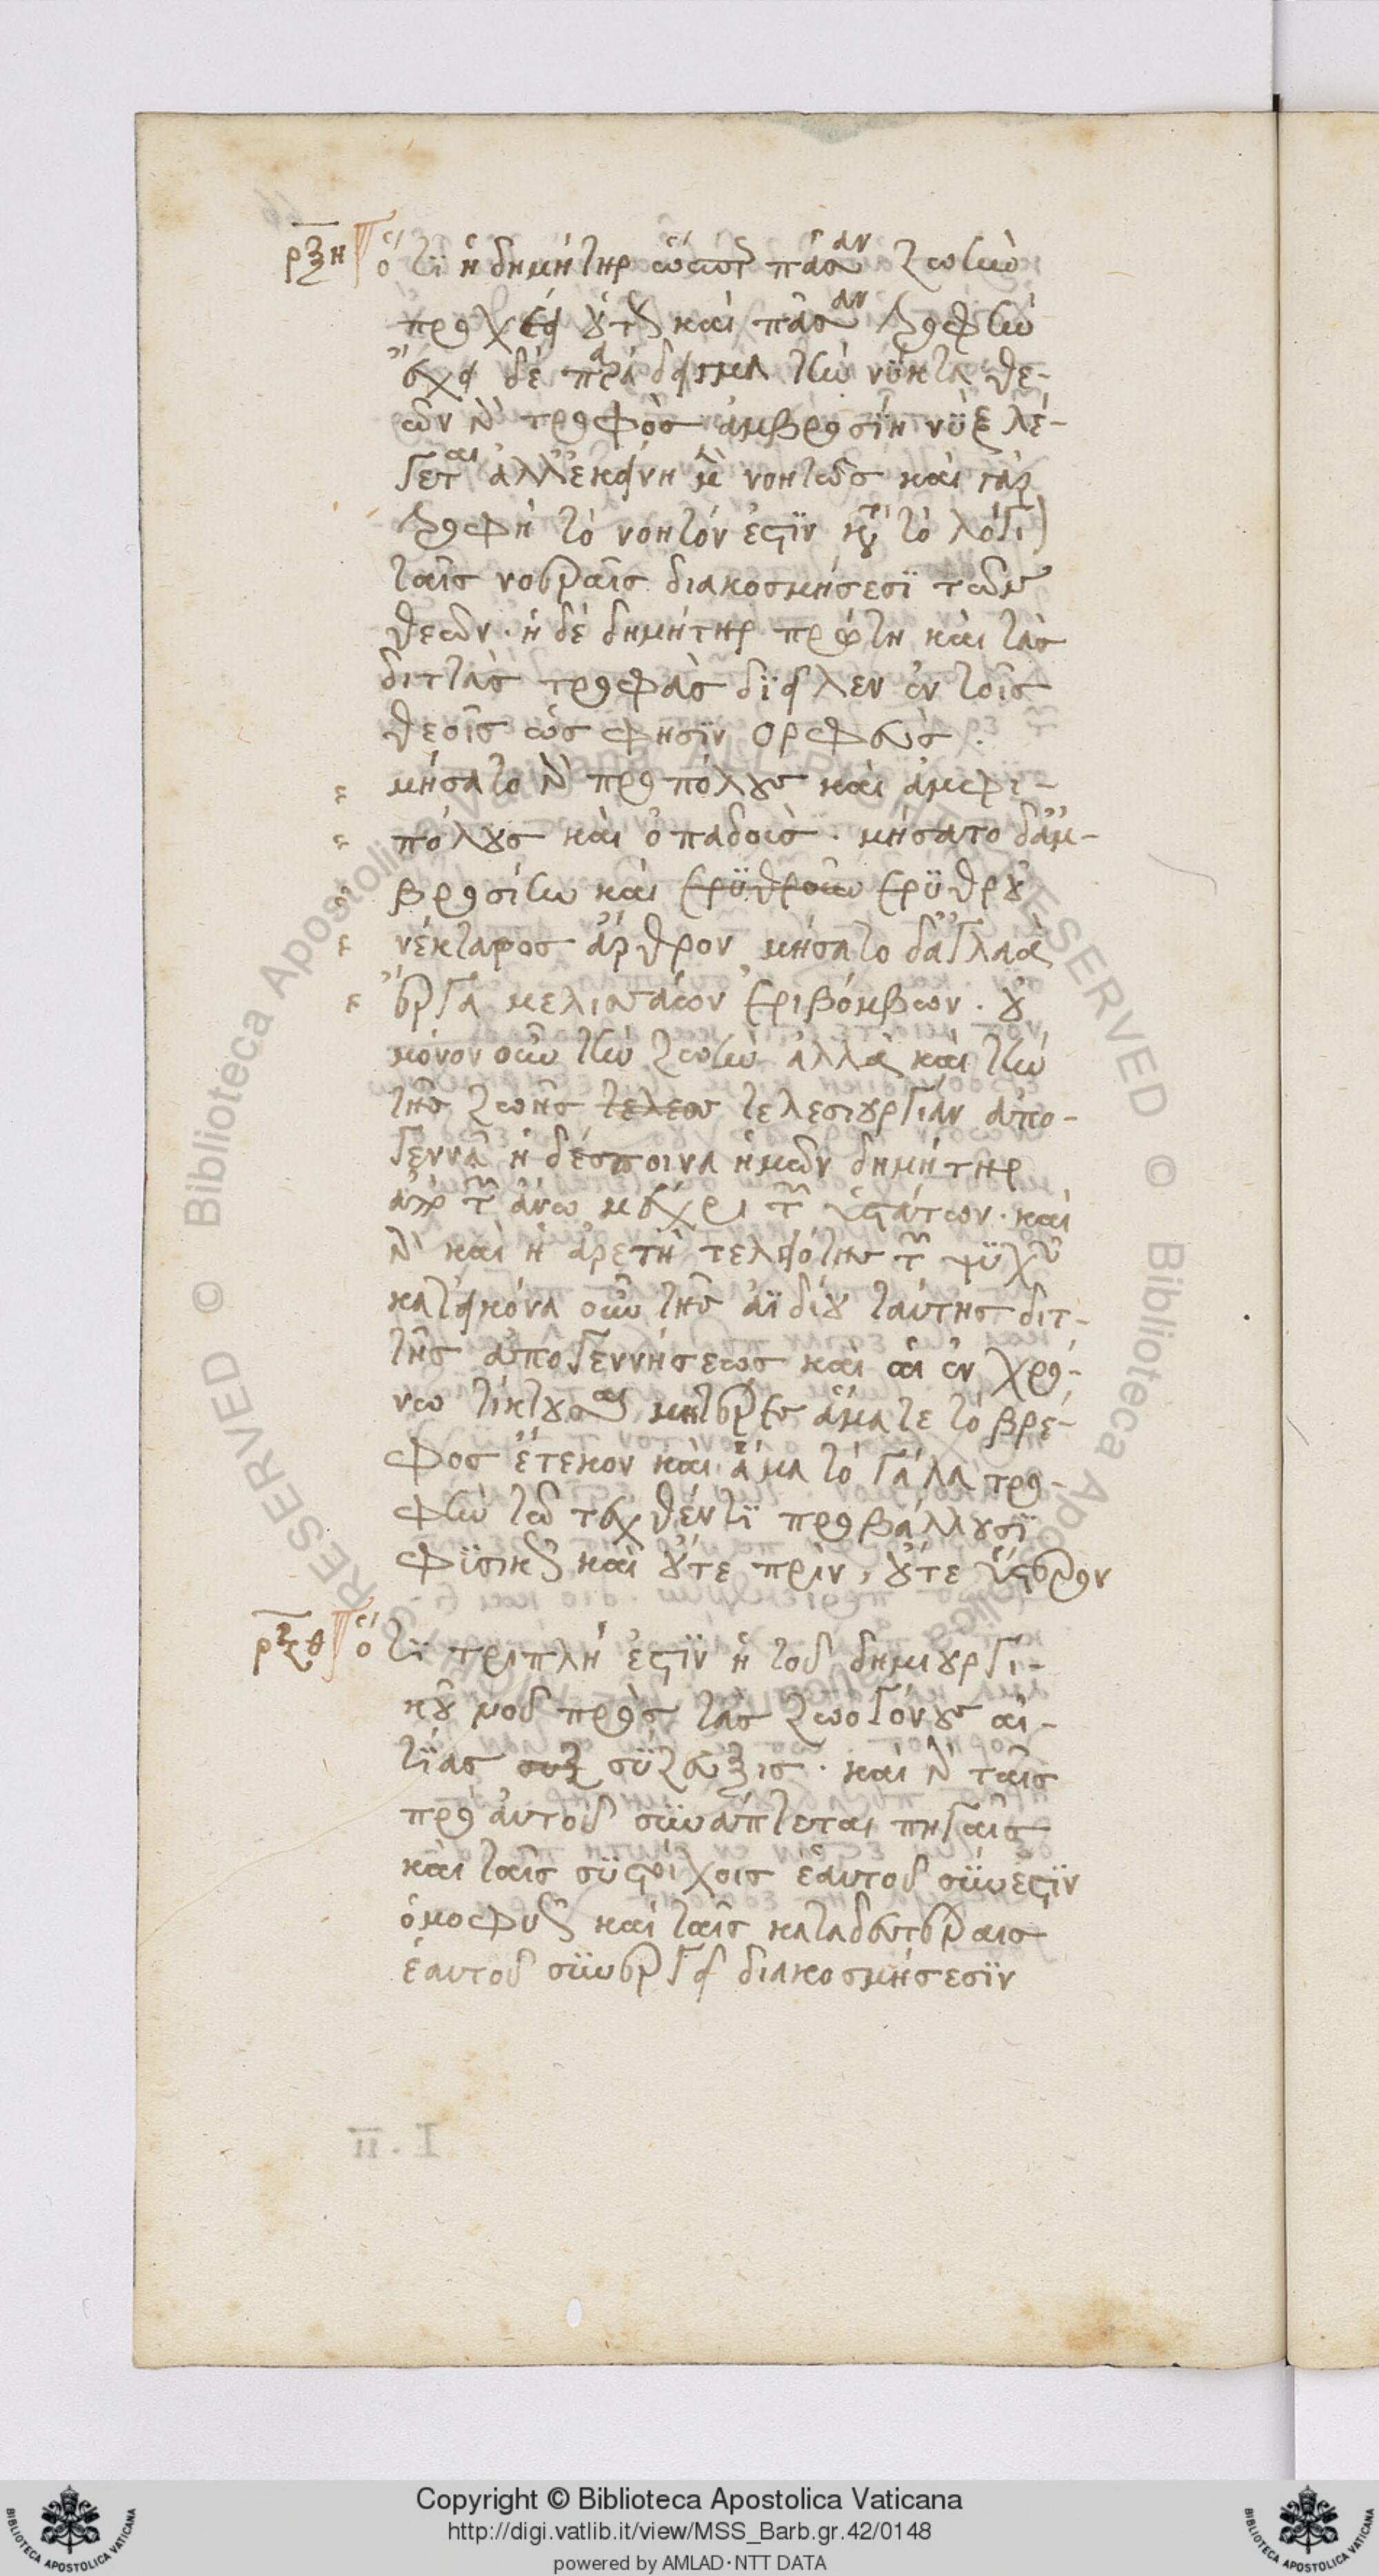 ρξη ὅτι ἡ δημήτηρ ὥσπερ πᾶσαν ζωὴν
προχέει οὕτω καὶ πᾶσαν τροφὴν
ἔχει δὲ παράδειγμα τὴν νύκτα θε-
ῶν γὰρ τροφὸς ἀμβροσίη νὺξ λέ-
γεται ἀλλ' ἐκείνη μὲν νοητῶς καὶ γὰρ
τροφὴ τὸ νοητόν ἐστιν κατὰ τὸ λόγι(
ταῖς νοεραῖς διακοσμήσεσι τῶν
θεῶν. ἡ δὲ δημήτηρ πρώτη καὶ τὰς
διττὰς τροφὰς διεῖλεν ἐν τοῖς
θεοῖς ὥς φησὶν ὀρφεὺς.
μήσατο γὰρ προπόλους καὶ ἀμφι-
πόλους καὶ ὀπαδοὶς. μήσατο δ' ἀμ-
βροσίην καὶ ἐρυθροῦν ἐρυθροῦ
νέκταρος ἄρθρον μήσατο δ' ἀγλαὰ
ἔργα μελισσάων ἐριβόμβων. οὐ
μόνον οὖν τὴν ζωὴν ἀλλὰ καὶ τὴν
τῆς ζωῆς τελεου τελεσιουργίαν ἀπο-
γεννᾶ ἡ δέσποινα ἡμῶν δημήτηρ
ἀπὸ τῶν ἄνω μέχρι τῶν ἐσχάτων. καὶ
γὰρ καὶ ἡ ἀρετὴ τελειότης τῶν ψυχῶν
κατ' εἰκόνα οὖν τῆς ἀϊδίου ταύτης διτ-
τῆς ἀπογεννήσεως καὶ αἱ ἐν χρό-
νω τίκτουσαι μητέρες ἅμα τε τὸ βρέ-
φος ἔτεκον καὶ ἅμα τὸ γάλα τρο-
φὴν τῶ τεχθέντι προβάλλουσι
φυσικῶς καὶ οὔτε πρὶν, οὔτε ὕστερον
ρξθ ὅτι τριπλῆ ἐστὶν ἡ τοῦ δημιουργι-
κοῦ νοῦ πρὸς τὰς ζωογόνους αἰ-
τίας συξ σύζευξις. καὶ γὰρ ταῖς
πρὸ αὐτοῦ συνάπτεται πηγαῖς
καὶ ταῖς συστοίχοις ἑαυτοῦ σύνεστιν
ὁμοφυῶς καὶ ταῖς καταδεεστέραις
ἑαυτοῦ συνεργεῖ διακοσμήσεσιν
Copyright © Biblioteca Apostolica Vaticana
http://digi.vatlib.it/view/MSS_Barb.gr.42/0148
powered by AMLAD·NTT DATA